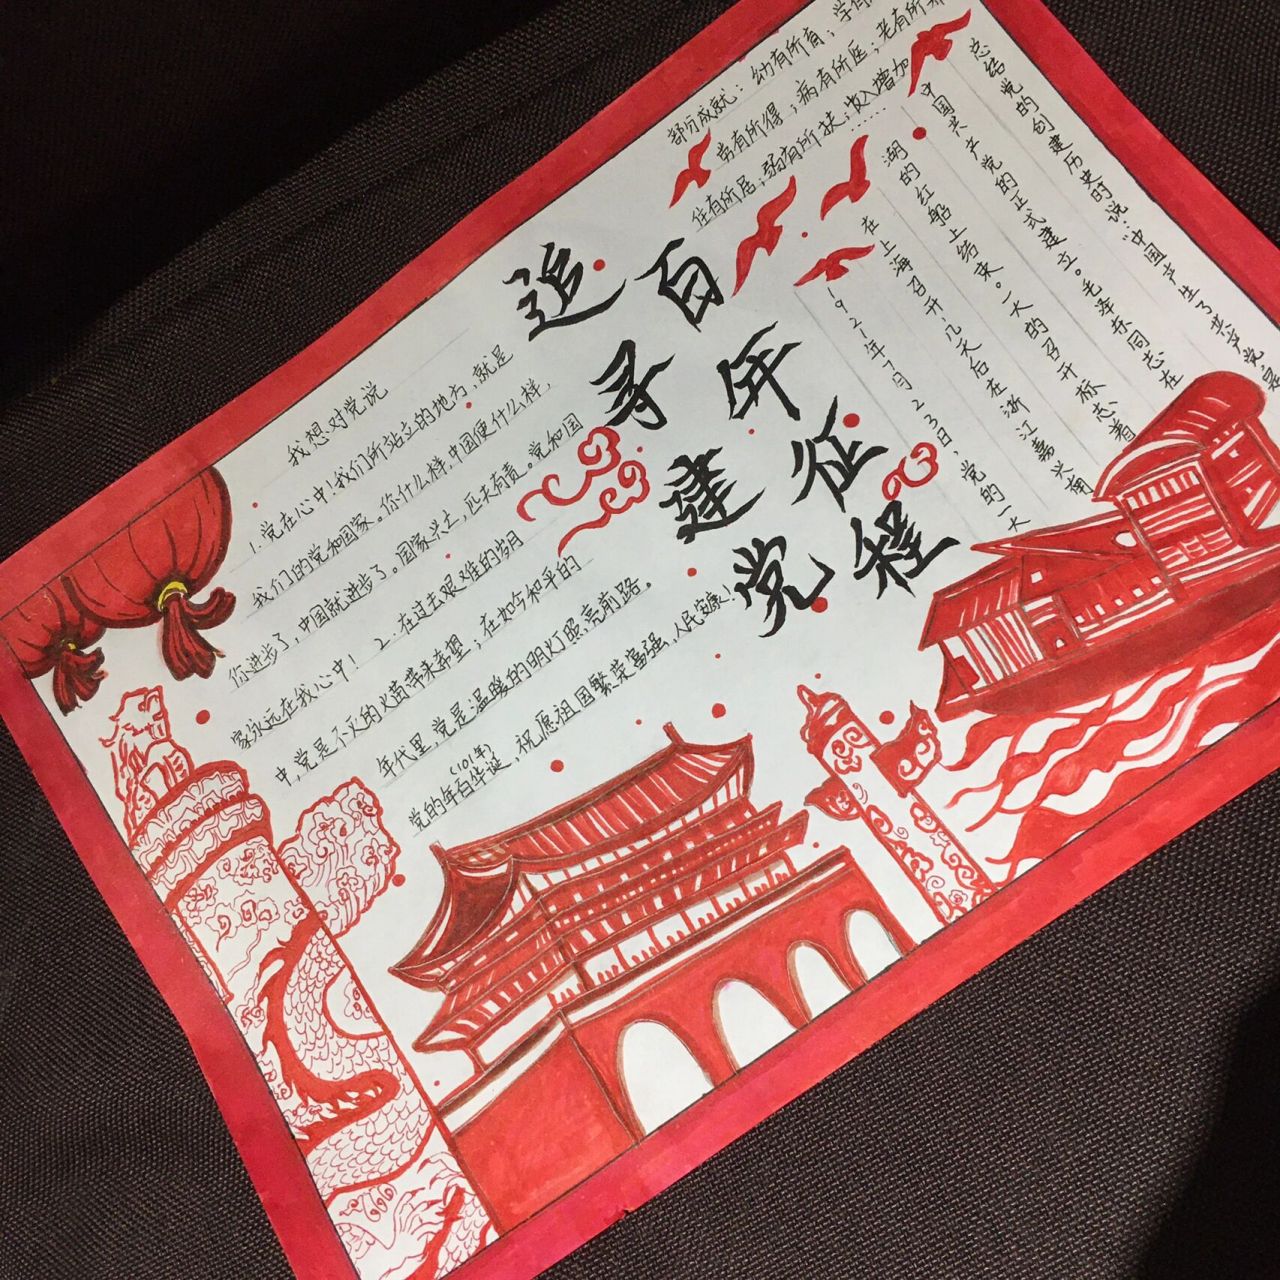 追寻建党
百年征程
部分成就：幼有所育；学有
劳有所得；病有所医；老有所
住有所居；弱有所扶；收入增加
……
1921年7月23日，党的一大
在上海召开，几天后在浙江嘉兴南
湖的红船上结束。一大的召开标志着
中国共产党的正式建立。毛泽东同志在
总结党的创建历史时说：“中国产生了共产党，是
我想对党说
1.党在心中！我们所站立的地方，就是
我们的党和国家。你什么样，中国便什么样，
你进步了，中国就进步了。国家兴亡，匹夫有责。党和国
家永远在我心中！ 2.在过去艰难的岁月
中，党是不灭的火苗带来希望；在如今和平的
年代里，党是温暖的明灯照亮前路。
(101年)
党的年百华诞，祝愿祖国繁荣富强，人民安康！